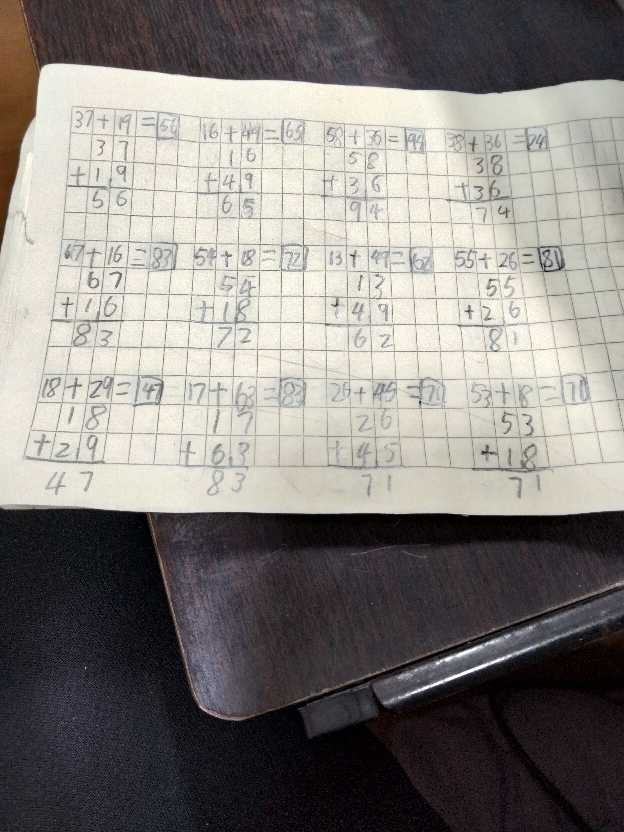 37+19=56 16+49=65 58+36=94 38+36=74
37 16 58 38
+19 +49 +36 +36
56 65 94 74
67+16=83 54+18=72 13+49=62 55+26=81
67 54 13 55
+16 +18 +49 +26
83 72 62 81
18+29=47 17+63=83 26+45=71 53+18=71
18 17 26 53
+29 +63 +45 +18
47 83 71 71